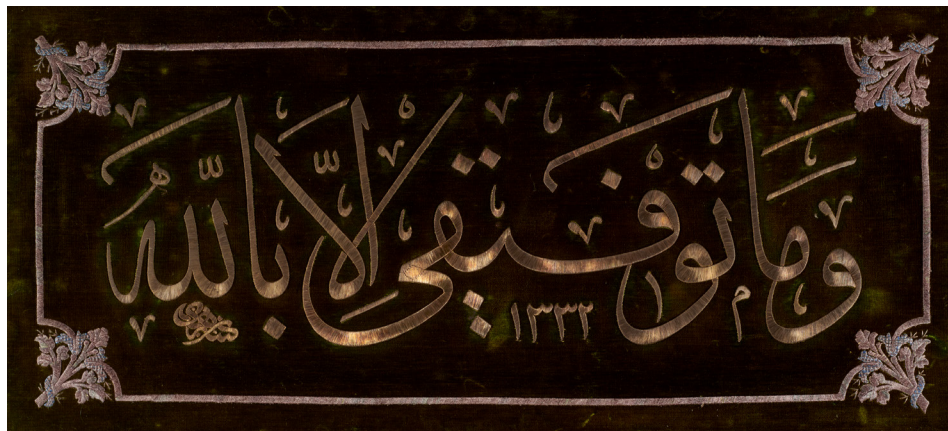 وَمَا تَوْفِيقِي إِلَّا بِاللَّهِ
١٣٣٢